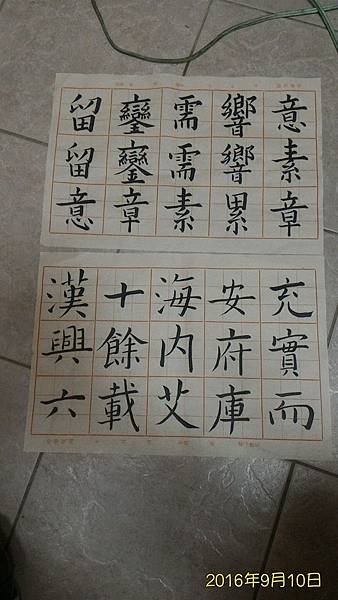 留留意
鑾鑾章
需需素
響響累
意素章
漢興六
十餘載
海内艾
安府庫
充實而
2016年9月10日